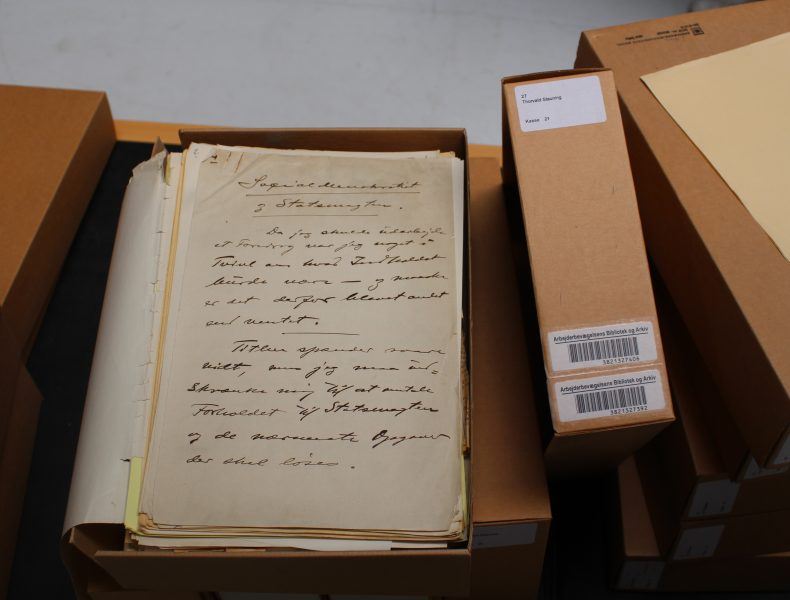 Socialdemokratiet
og Statsmagten.
Da jeg skulde udarbejde
et Foredrag var jeg noget i
Tvivl om hvad Indholdet
burde være — og maaske
er det derfor blevet andet
end ventet.
Titlen spænder
vidt men jeg maa ind=
skrænke mig til at omtale
Forholdet til Statsmagten
og de nærmeste Opgaver
der skal løses.
27
Thorvald Stauning
Kasse 21
Arbejderbevægelsens Bibliotek og Arkiv
3821327406
Arbejderbevægelsens Bibliotek og Arkiv
3821327392